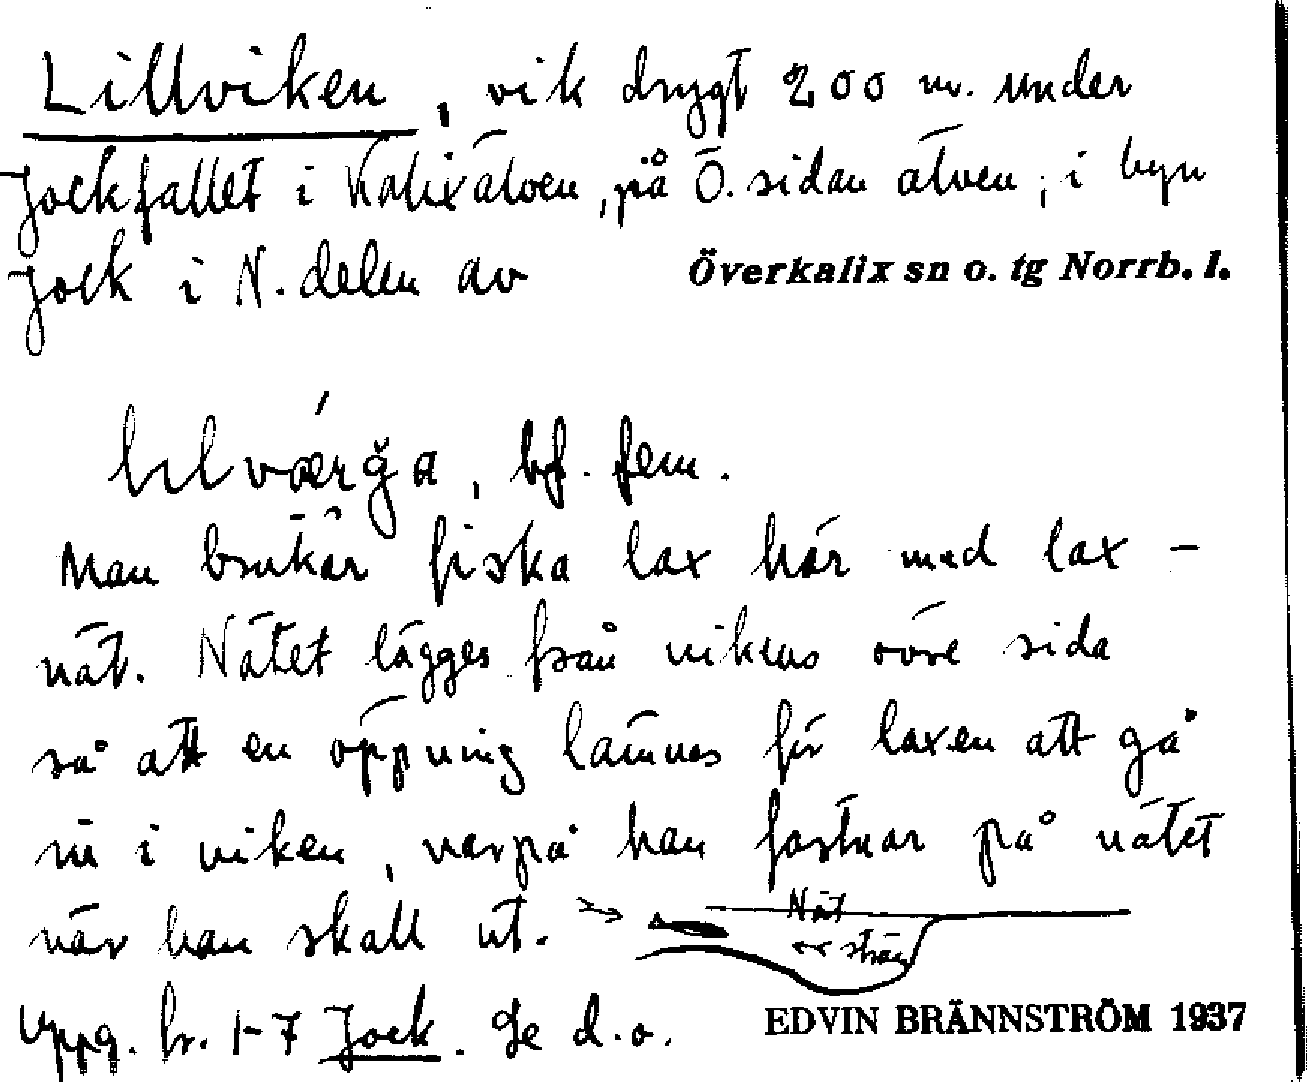 Lillviken, vik drygt 200 m. under
Jockfallet i Kalixälven, på Ö. sidan älven, i byn
Jock i N. delen av Överkalix sn o. tg Norrb. l.
bf. fem.
Man brukar fiska lax här med lax-
nät. Nätet lägges från vikens övre sida
så att en öppning lämnas för laxen att gå
in i viken, varpå han fastnar på nätet
när han skall ut.
Nät
Uppg. fr. 1-7 Jock. Se d.o. EDVIN BRÄNNSTRÖM 1937